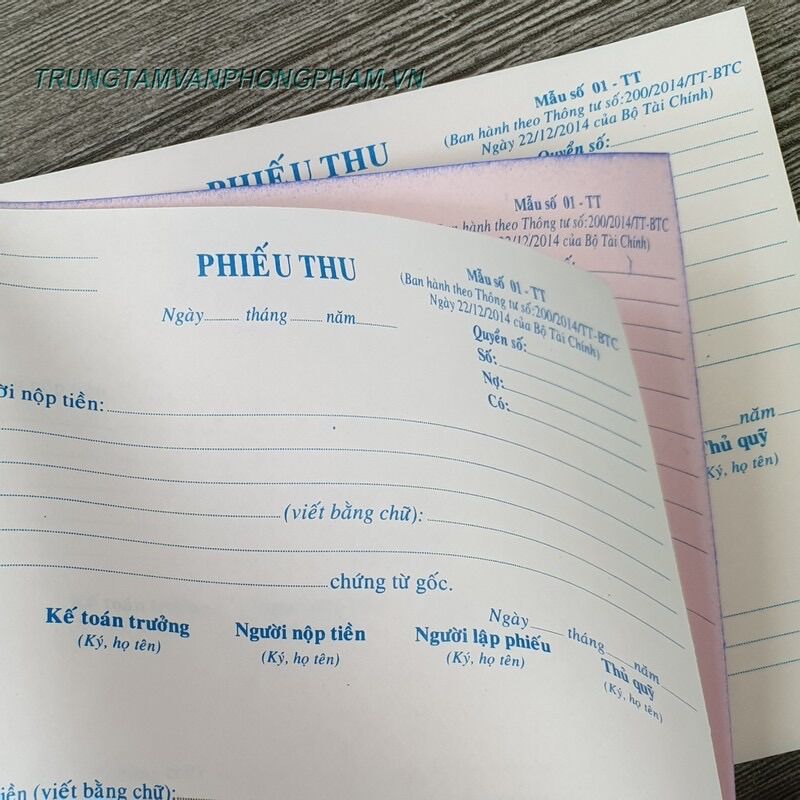 TRUNGTAMVANPHONGPHAM.VN
Mẫu số 01 - TT
(Ban hành theo Thông tư số:200/2014/TT-BTC
Ngày 22/12/2014 của Bộ Tài Chính)
PHIẾU THU
Quyển số:
năm
Thủ quỹ
(Ký, họ tên)
Mẫu số 01 - TT
hành theo Thông tư số:200/2014/TT-BTC
/12/2014 của Bộ Tài Chính)
PHIẾU THU
Ngày tháng năm
Mẫu số 01 - TT
(Ban hành theo Thông tư số:200/2014/TT-BTC
Ngày 22/12/2014 của Bộ Tài Chính)
Quyển số:
Số:
Nợ:
Có:
nộp tiền:
(viết bằng chữ):
chứng từ gốc.
Ngày tháng năm
Kế toán trưởng Người nộp tiền Người lập phiếu Thủ quỹ
(Ký, họ tên) (Ký, họ tên) (Ký, họ tên) (Ký, họ tên)
(viết bằng chữ):